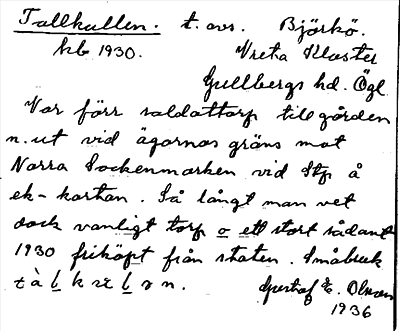 Tallkullen. t. avs. Björkö.
kb 1930. Vreta Kloster
Gullbergs hd. Ögl.
Var förr soldattorp till gården
n. ut vid ägornas gräns mot
Norra Sockenmarken vid Stp å
ek-kartan. Så långt man vet
dock vanligt torp o ett stort sådant
1930 friköpt från staten. Småbruk
Gustaf E. Olsson
1936